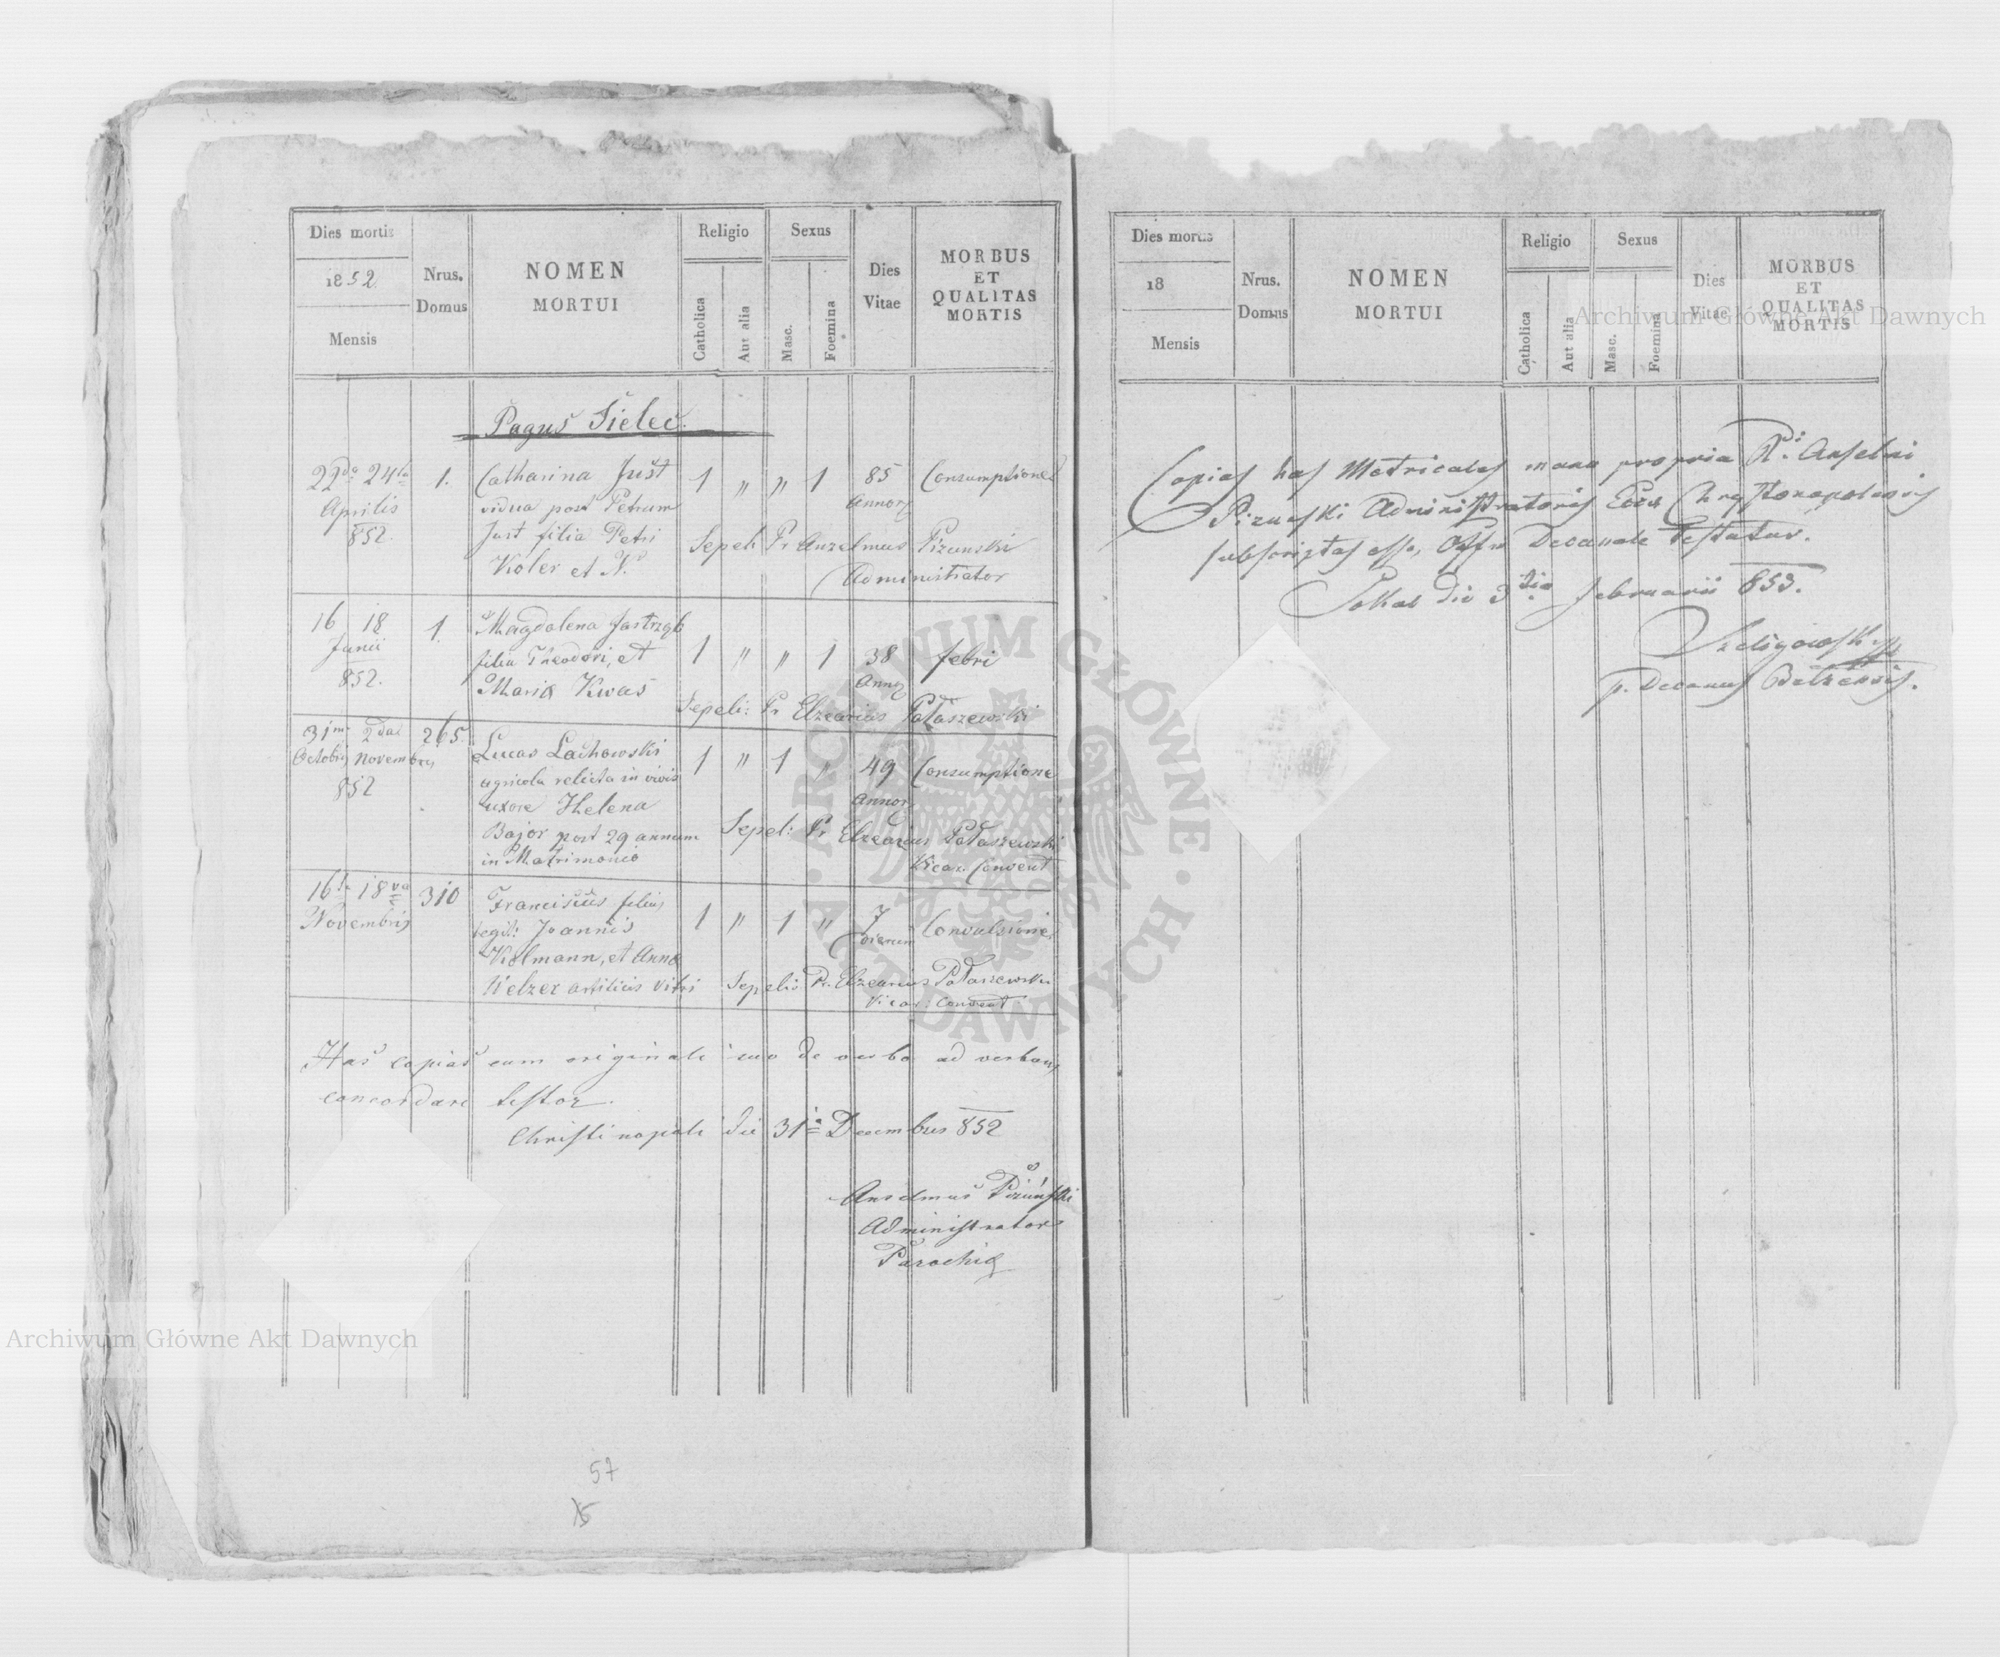 Dies mortis
1852.
Mensis
Nrus.
Domus
NOMEN
MORTUI
Religio
Catholica
Aut alia
Sexus
Masc.
Foemina
Dies
Vitae
MORBUS
ET
QUALITAS
MORTIS
Pagus Sielec.
22da 24ta
Aprilis
852.
1.
Catharina Just
vidua post Petrum
Just filia Petri
Koler et N.
1 " " 1
85
Annor
Consumptione
Sepeli Pr Anzelmus Pizunski
Administrator
16 18
Junii
852.
1.
Magdalena Jastrząb
filia Theodori, et
Maria Kwas
1 " " 1
38
Anno
febri
Sepeli: Pr Elzearius Pałaszewski
31ma 2da
Octobris Novembris
852
265
Lucas Lachowski
agricola relicta in vivis
uxore Helena
Bajor post 29 annum
in Matrimonio
1 " 1 "
49
Annor
Consumptione
Sepel: Pr Elzearius Pałaszewski
Vicar. Convent
16ta 18va
Novembris
310
Franciscus filius
legit: Joannis
Kolmann, et Anna
Welzer artificis vitri
1 " 1 "
7
dierum
Convulsione
Sepeli: Pr. Elzearius Pałaszewski
Vicar: Convent
Has copias cum originali suo de verbo ad verbum
concordare testor.
Christinopoli die 31a Decembris 852
Anselmus Pizuński
Administrator
Parochia
57
Dies mortis
18
Mensis
Nrus.
Domus
NOMEN
MORTUI
Religio
Catholica
Aut alia
Sexus
Masc.
Foemina
Dies
Vitae
MORBUS
ET
QUALITAS
MORTIS
Copias has Metricales manu propria Rdi Anselmi
Pizunski Administratoris Chrystonopolensis
subscriptas esse, Offm Decanale testatur.
Sokal die 3tia februarii 853.
Szeligowski
p. Decanus Belzensis.
Archiwum Główne Akt Dawnych
Archiwum Główne Akt Dawnych
ARCHIWUM GŁÓWNE AKT DAWNYCH